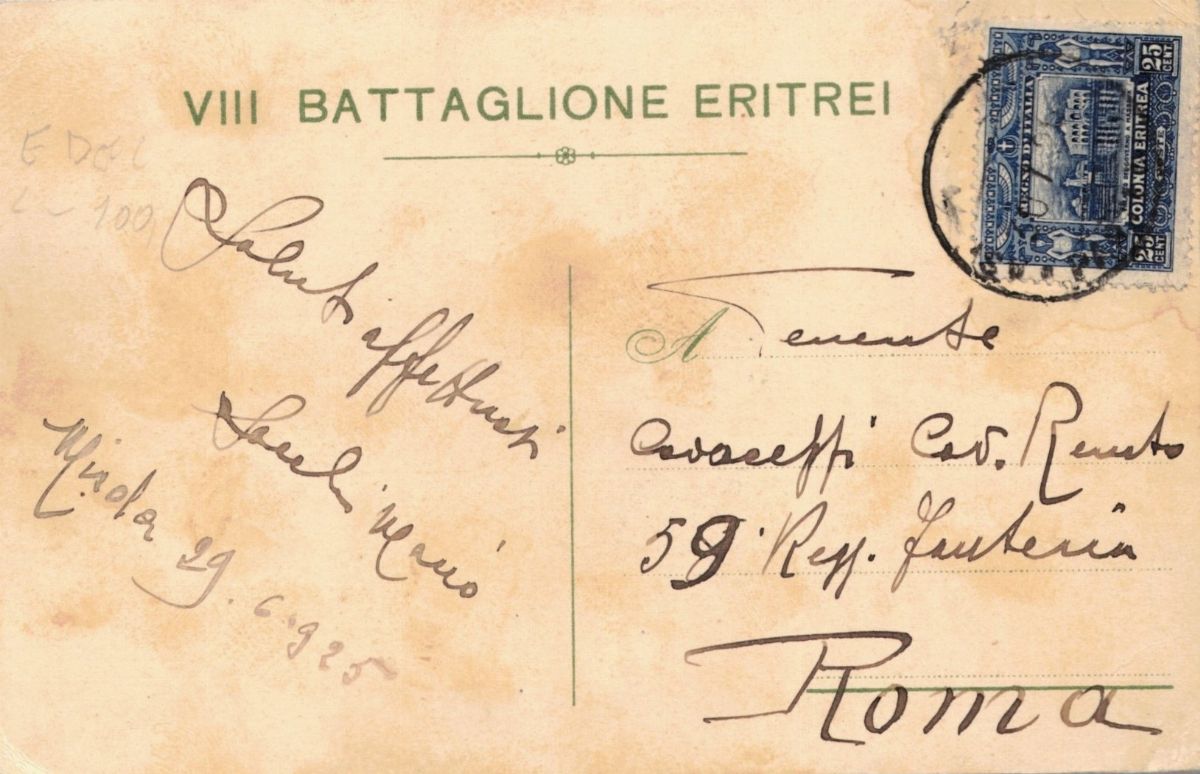 VIII BATTAGLIONE ERITREI
25 CENT
REGNO D'ITALIA
COLONIA ERITREA
25 CENT
E DEL
100
Saluti affettuosi
Mario
29.6.925
A Tenente
Cav. Renato
59° Regg. Fanteria
Roma